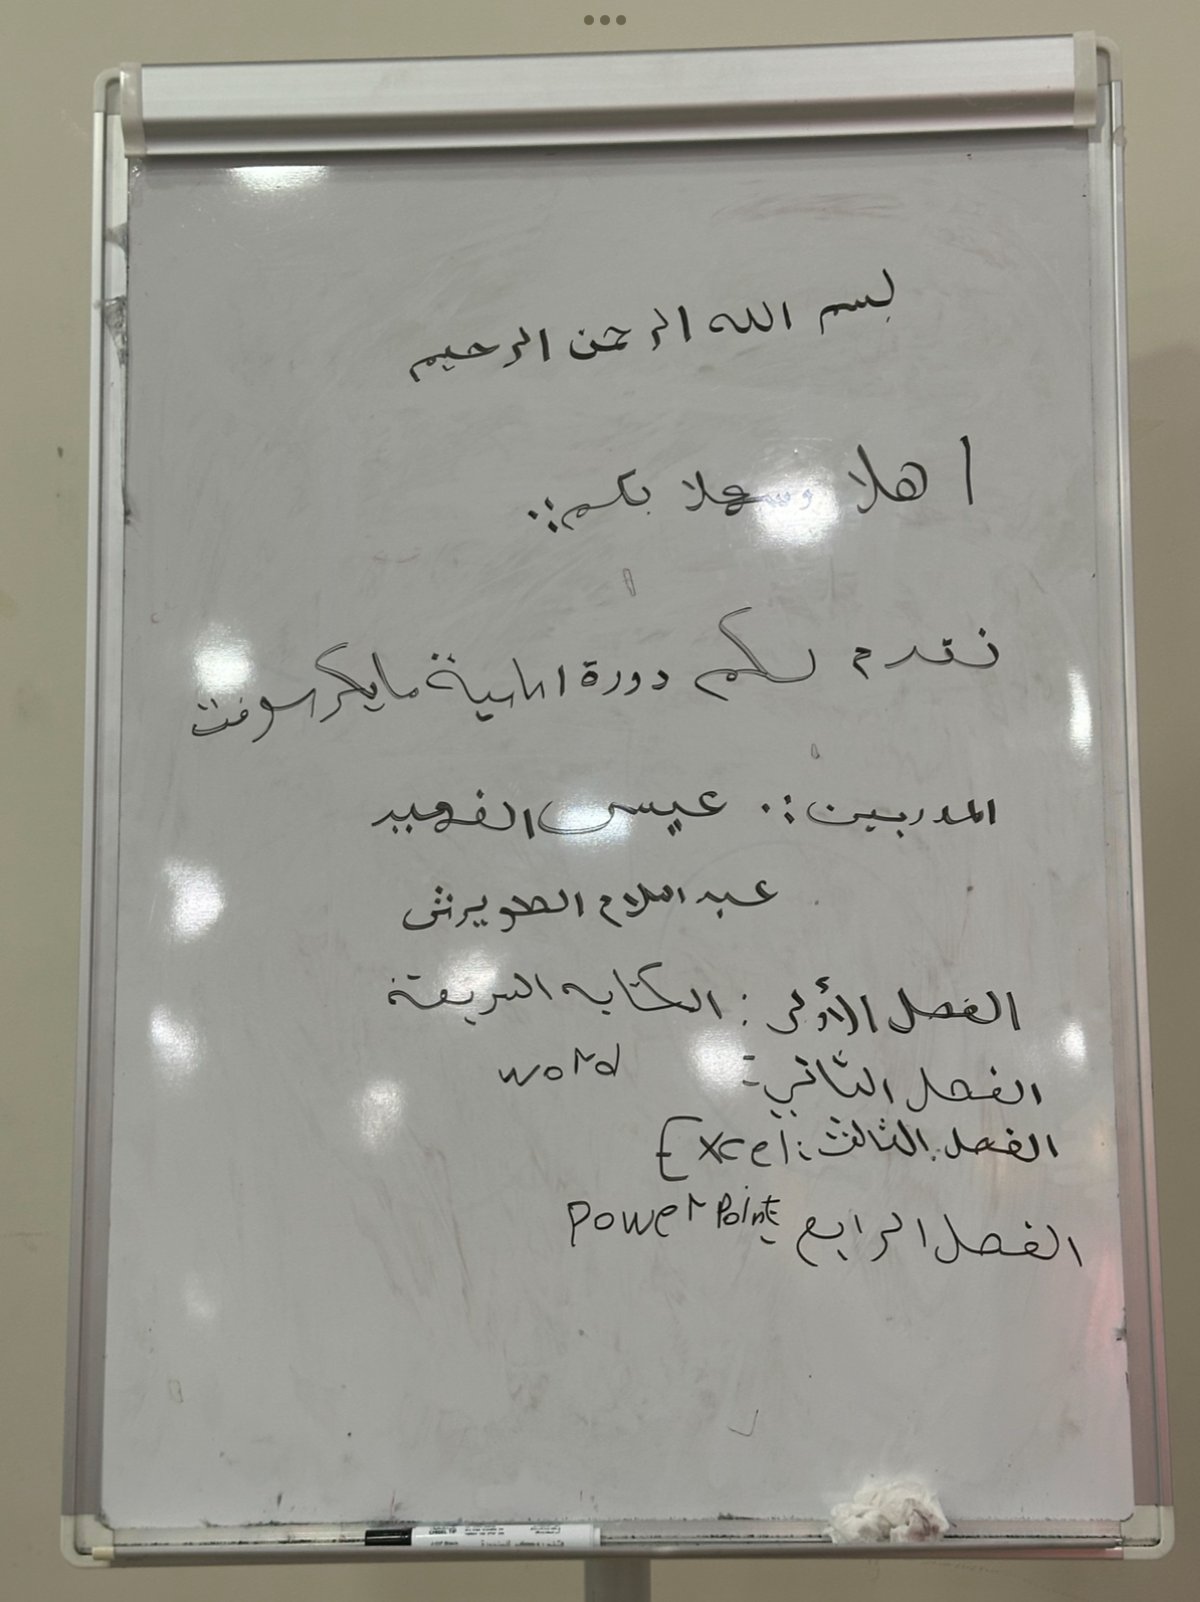 بسم الله الرحمن الرحيم
اهلا وسهلا بكم :.
نقدم لكم دورة اساسية مايكرسوفت
المدربين :. عيسى الفهيد
عبد السلام الطويرش
الفصل الأولى : الكتابه السريعة
الفصل الثاني : word
الفصل الثالث : Excel
الفصل الرابع PowerPoint